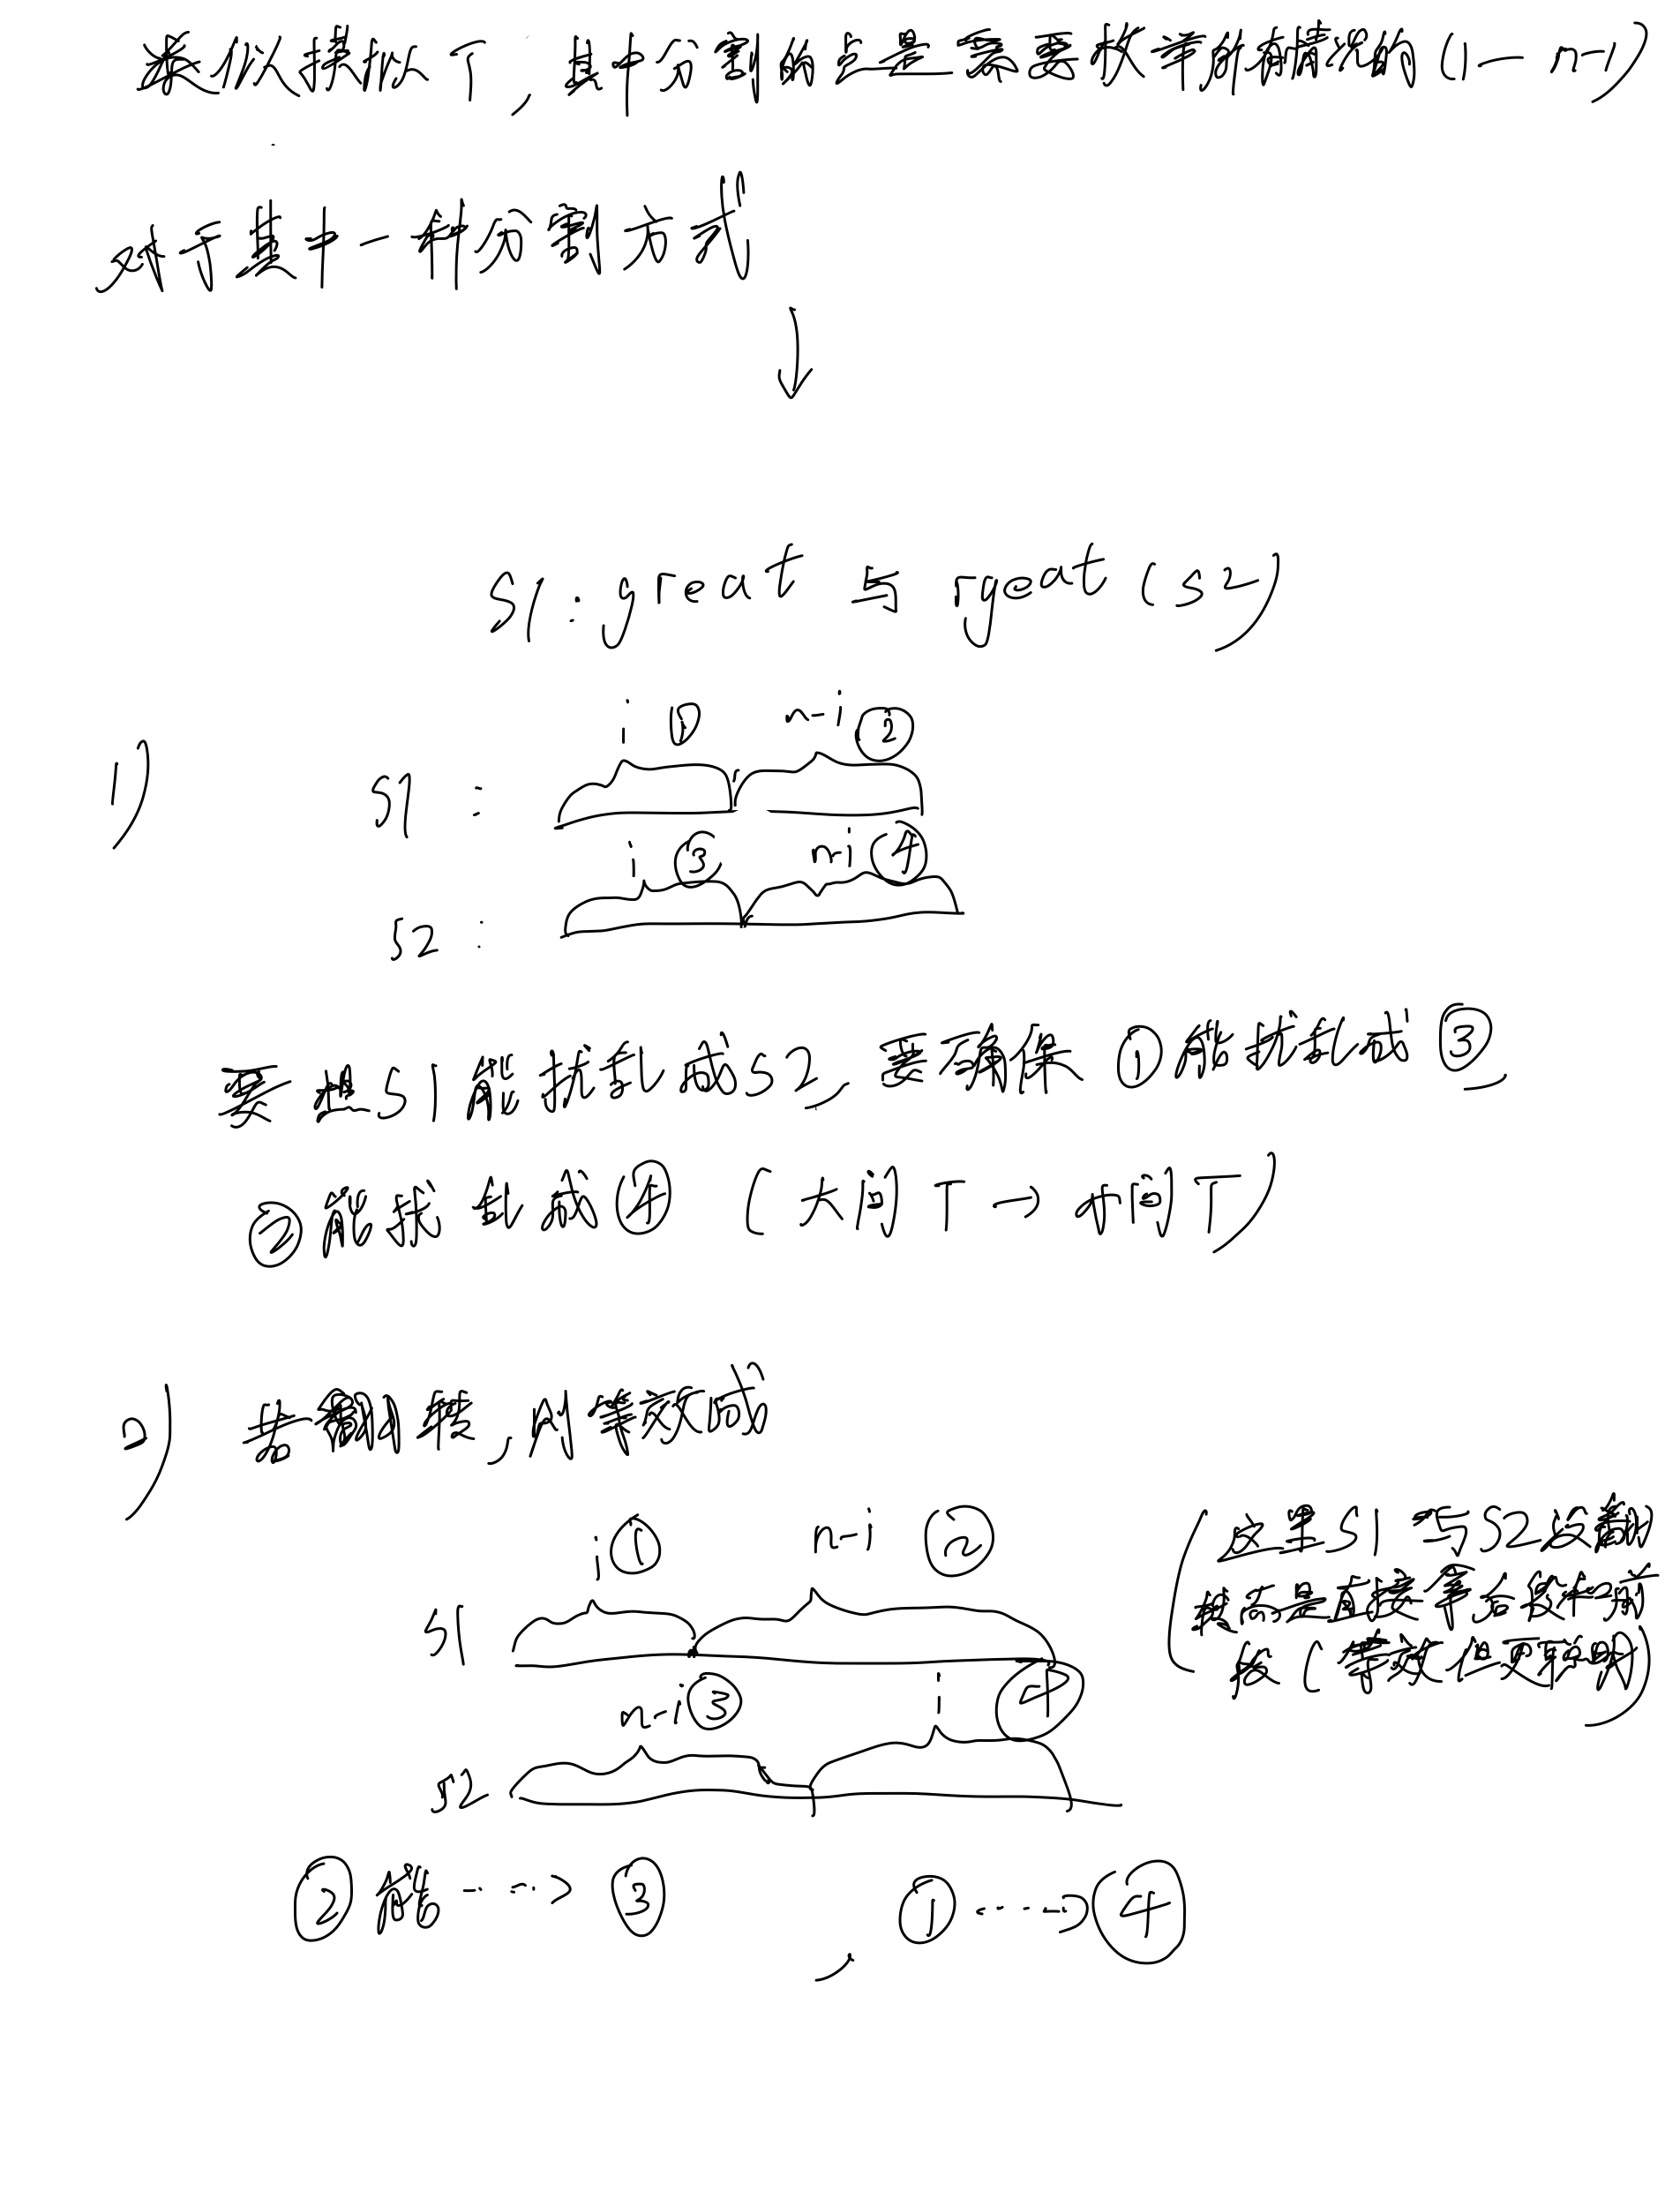 类似模拟T,其中分割的点是需要枚举所有情况的(1—n-1)
对于其中一种分割方式
↓
S1:great 与 rgeat(s2)
1)
i ① n-i ②
S1:
i ③ n-i ④
S2:
要想S1能扰乱成S2,要确保①能扰乱成③,
②能扰乱成④(大问T→小问T)
2) 若翻转,则等效成
i ① n-i ②
S1
n-i ③ i ④
S2
(这里S1与S2没翻
转而是直接拿后段和前
段(等效但更聪明)
②能---->③ , ①---->④